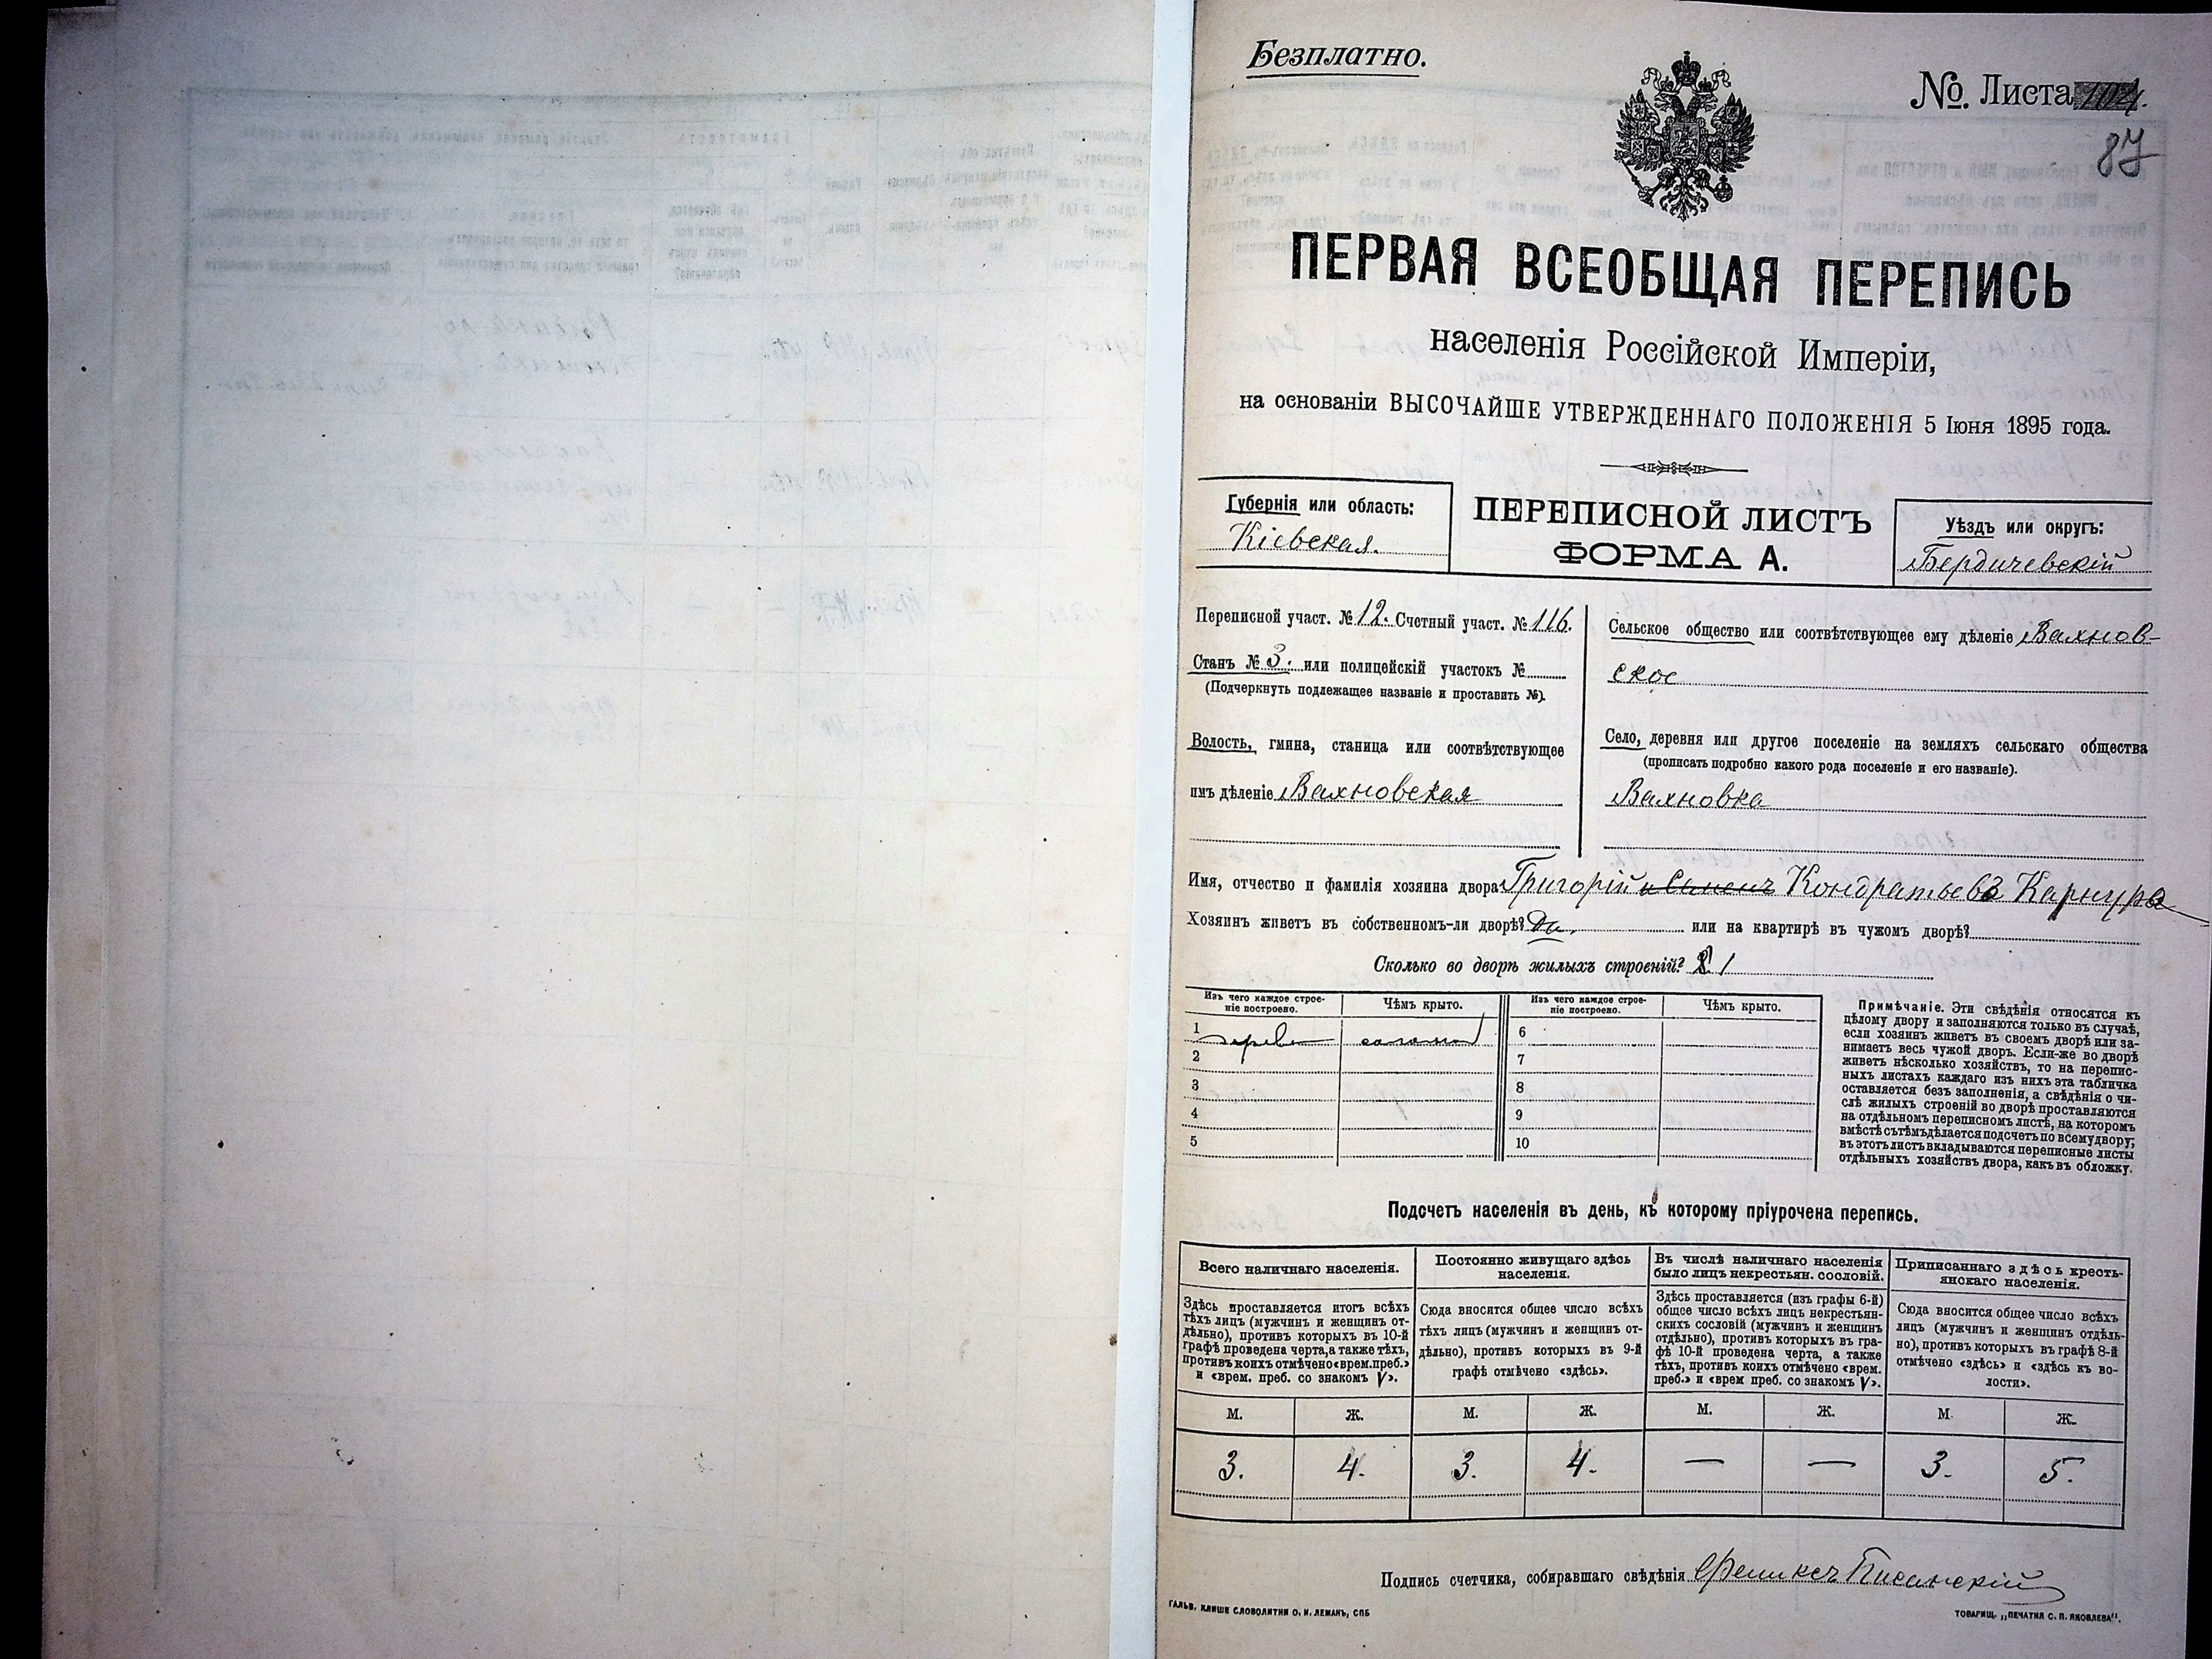 Безплатно.
№ Листа 104.
87
ПЕРВАЯ ВСЕОБЩАЯ ПЕРЕПИСЬ
населенія Россійской Имперіи,
на основаніи ВЫСОЧАЙШЕ УТВЕРЖДЕННАГО ПОЛОЖЕНІЯ 5 Іюня 1895 года.
Губернія или область:
Кіевская.
ПЕРЕПИСНОЙ ЛИСТЪ
ФОРМА А.
Уѣздъ или округъ:
Бердичевскій
Переписной участ. № 12. Счетный участ. № 116.
Станъ № 3. или полицейскій участокъ №
(Подчеркнуть подлежащее названіе и проставить №).
Волость, гмина, станица или соотвѣтствующее
имъ дѣленіе Вахновская
Сельское общество или соотвѣтствующее ему дѣленіе Вахнов-
ское
Село, деревня или другое поселеніе на земляхъ сельскаго общества
(прописать подробно какого рода поселеніе и его названіе).
Вахновка
Имя, отчество и фамилія хозяина двора Григорій и Семенъ Кондратьевъ Карнура
Хозяинъ живетъ въ собственномъ-ли дворѣ? Да. или на квартирѣ въ чужомъ дворѣ?
Сколько во дворѣ жилыхъ строеній? 1
Изъ чего каждое строе-
ніе построено.
Чѣмъ крыто.
Изъ чего каждое строе-
ніе построено.
Чѣмъ крыто.
1
6
2
7
3
8
4
9
5
10
Примѣчаніе. Эти свѣдѣнія относятся къ
цѣлому двору и заполняются только въ случаѣ,
если хозяинъ живетъ въ своемъ дворѣ или за-
нимаетъ весь чужой дворъ. Если-же во дворѣ
живетъ нѣсколько хозяйствъ, то на перепис-
ныхъ листахъ каждаго изъ нихъ эта табличка
оставляется безъ заполненія, а свѣдѣнія о чи-
слѣ жилыхъ строеній во дворѣ проставляются
на отдѣльномъ переписномъ листѣ, на которомъ
вмѣстѣ съ тѣмъ дѣлается подсчетъ по всему двору;
въ этотъ листъ вкладываются переписные листы
отдѣльныхъ хозяйствъ двора, какъ въ обложку.
Подсчетъ населенія въ день, къ которому пріурочена перепись.
Всего наличнаго населенія.
Здѣсь проставляется итогъ всѣхъ
тѣхъ лицъ (мужчинъ и женщинъ от-
дѣльно), противъ которыхъ въ 10-й
графѣ проведена черта, а также тѣхъ,
противъ коихъ отмѣчено «врем. преб.»
и «врем. преб. со знакомъ V».
Постоянно живущаго здѣсь
населенія.
Сюда вносится общее число всѣхъ
тѣхъ лицъ (мужчинъ и женщинъ от-
дѣльно), противъ которыхъ въ 9-й
графѣ отмѣчено «здѣсь».
Въ числѣ наличнаго населенія
было лицъ некрестьян. сословій.
Здѣсь проставляется (изъ графы 6-й)
общее число всѣхъ лицъ некрестьян-
скихъ сословій (мужчинъ и женщинъ
отдѣльно), противъ которыхъ въ гра-
фѣ 10-й проведена черта, а также
тѣхъ, противъ коихъ отмѣчено «врем.
преб.» и «врем преб. со знакомъ V».
Приписаннаго здѣсь кресть-
янскаго населенія.
Сюда вносится общее число всѣхъ
лицъ (мужчинъ и женщинъ отдѣль-
но), противъ которыхъ въ графѣ 8-й
отмѣчено «здѣсь» и «здѣсь къ во-
лости».
М. Ж. М. Ж. М. Ж. М. Ж.
3. 4. 3. 4. — — 3. 5.
Подпись счетчика, собиравшаго свѣдѣнія Феликсъ Писанскій
ГАЛЬВ. КЛИШЕ СЛОВОЛИТНИ О. И. ЛЕМАНЪ, СПБ
ТОВАРИЩ. „ПЕЧАТНЯ С. П. ЯКОВЛЕВА".